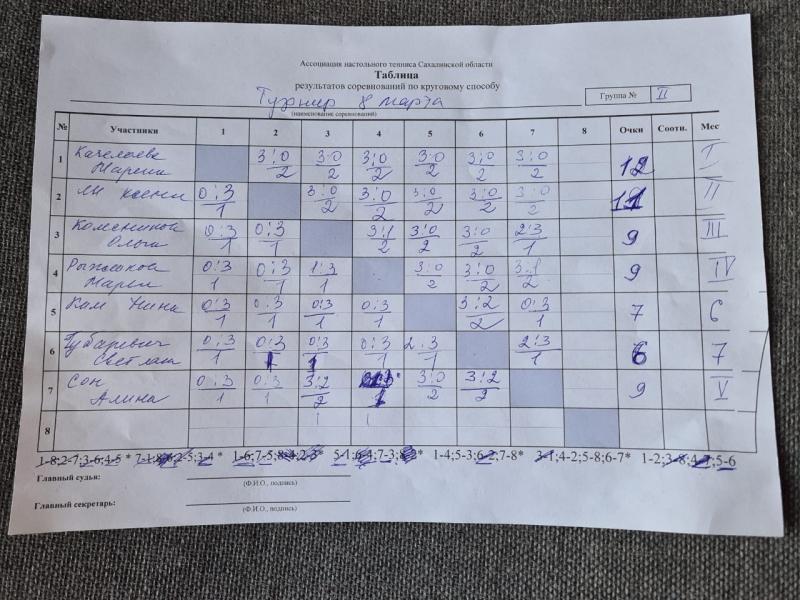 Ассоциация настольного тенниса Сахалинской области
Таблица
результатов соревнований по круговому способу
Турнир 8 марта
(наименование соревнований)
Группа № II
№ Участники 1 2 3 4 5 6 7 8 Очки Соотн. Мес
1 Марина 3:0/2 3:0/2 3:0/2 3:0/2 3:0/2 3:0/2 12 I
2 Ли Ксения 0:3/1 3:0/2 3:0/2 3:0/2 3:0/2 3:0/2 11 II
3 Ольга 0:3/1 0:3/1 3:1/2 3:0/2 3:0/2 2:3/1 9 III
4 Рыжкова Мария 0:3/1 0:3/1 1:3/1 3:0/2 3:0/2 3:1/2 9 IV
5 Ким Нина 0:3/1 0:3/1 0:3/1 0:3/1 3:2/2 0:3/1 7 6
6 Губаревич Светлана 0:3/1 0:3/1 0:3/1 0:3/1 2:3/1 2:3/1 6 7
7 Сон Алина 0:3/1 0:3/1 3:2/2 1 3:0/2 3:2/2 9 V
8
1-8;2-7;3-6;4-5 * 7-1; 2-5;3-4 * 1-6;7-5; 4;2-3* 5-1;6-4;7-3; * 1-4;5-3;6-2;7-8* 3-1;4-2;5-8;6-7* 1-2;3-8;4-7;5-6
Главный судья:
(Ф.И.О., подпись)
Главный секретарь:
(Ф.И.О., подпись)